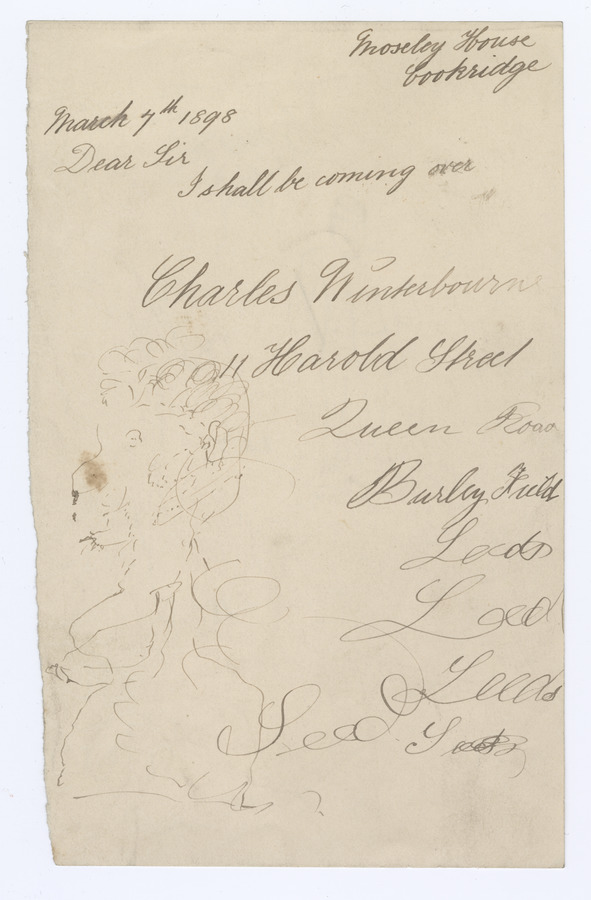 Moseley House
Cookridge
March 7th 1898
Dear Sir
I shall be coming over
Charles Winterbourne
11 Harold Street
Queen Road
Burley Field
Leeds
Leed
Leeds
Leed